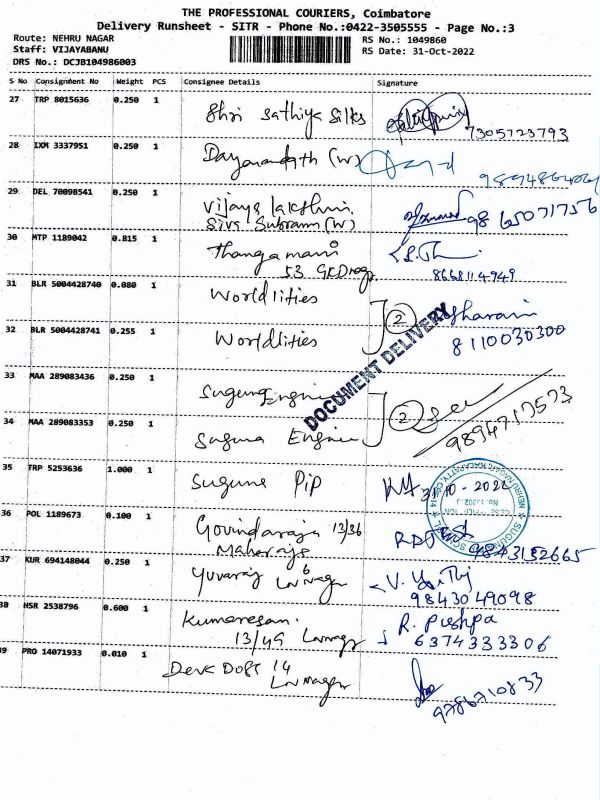 THE PROFESSIONAL COURIERS, Coimbatore
Delivery Runsheet - SITR - Phone No.:0422-3505555 - Page No.:3
Route: NEHRU NAGAR
RS No.: 1049860
Staff: VIJAYABANU
RS Date: 31-Oct-2022
DRS No.: DCJB104986003
S No Consignment No Weight PCS Consignee Details Signature
27 TRP 8015636 0.250 1 Shri Sathiya Silks
7305723793
28 IXM 3337951 0.250 1 (W)
29 DEL 70098541 0.250 1 Vijaya lakshmi
(W) 9865071756
30 MTP 1189042 0.815 1 Thangamani
53
8668114949
31 BLR 5004428740 0.080 1 Worldlities
2
32 BLR 5004428741 0.255 1 Worldlities
8110030300
DOCUMENT DELIVERY
33 MAA 289083436 0.250 1 Suguna
2
34 MAA 289083353 0.250 1 Suguna Engine
9894713573
35 TRP 5253636 1.000 1 Suguna PIP
31-10-2022
36 POL 1189673 0.100 1 Govindaraja 13/36
Maharaja
9843132665
37 KUR 694148044 0.250 1 Yuvaraj 6
9843049098
38 HSR 2538796 0.600 1 Kumaresan R. Pushpa
13/49 6374333306
39 PRO 14071933 0.010 1 14
9786710833